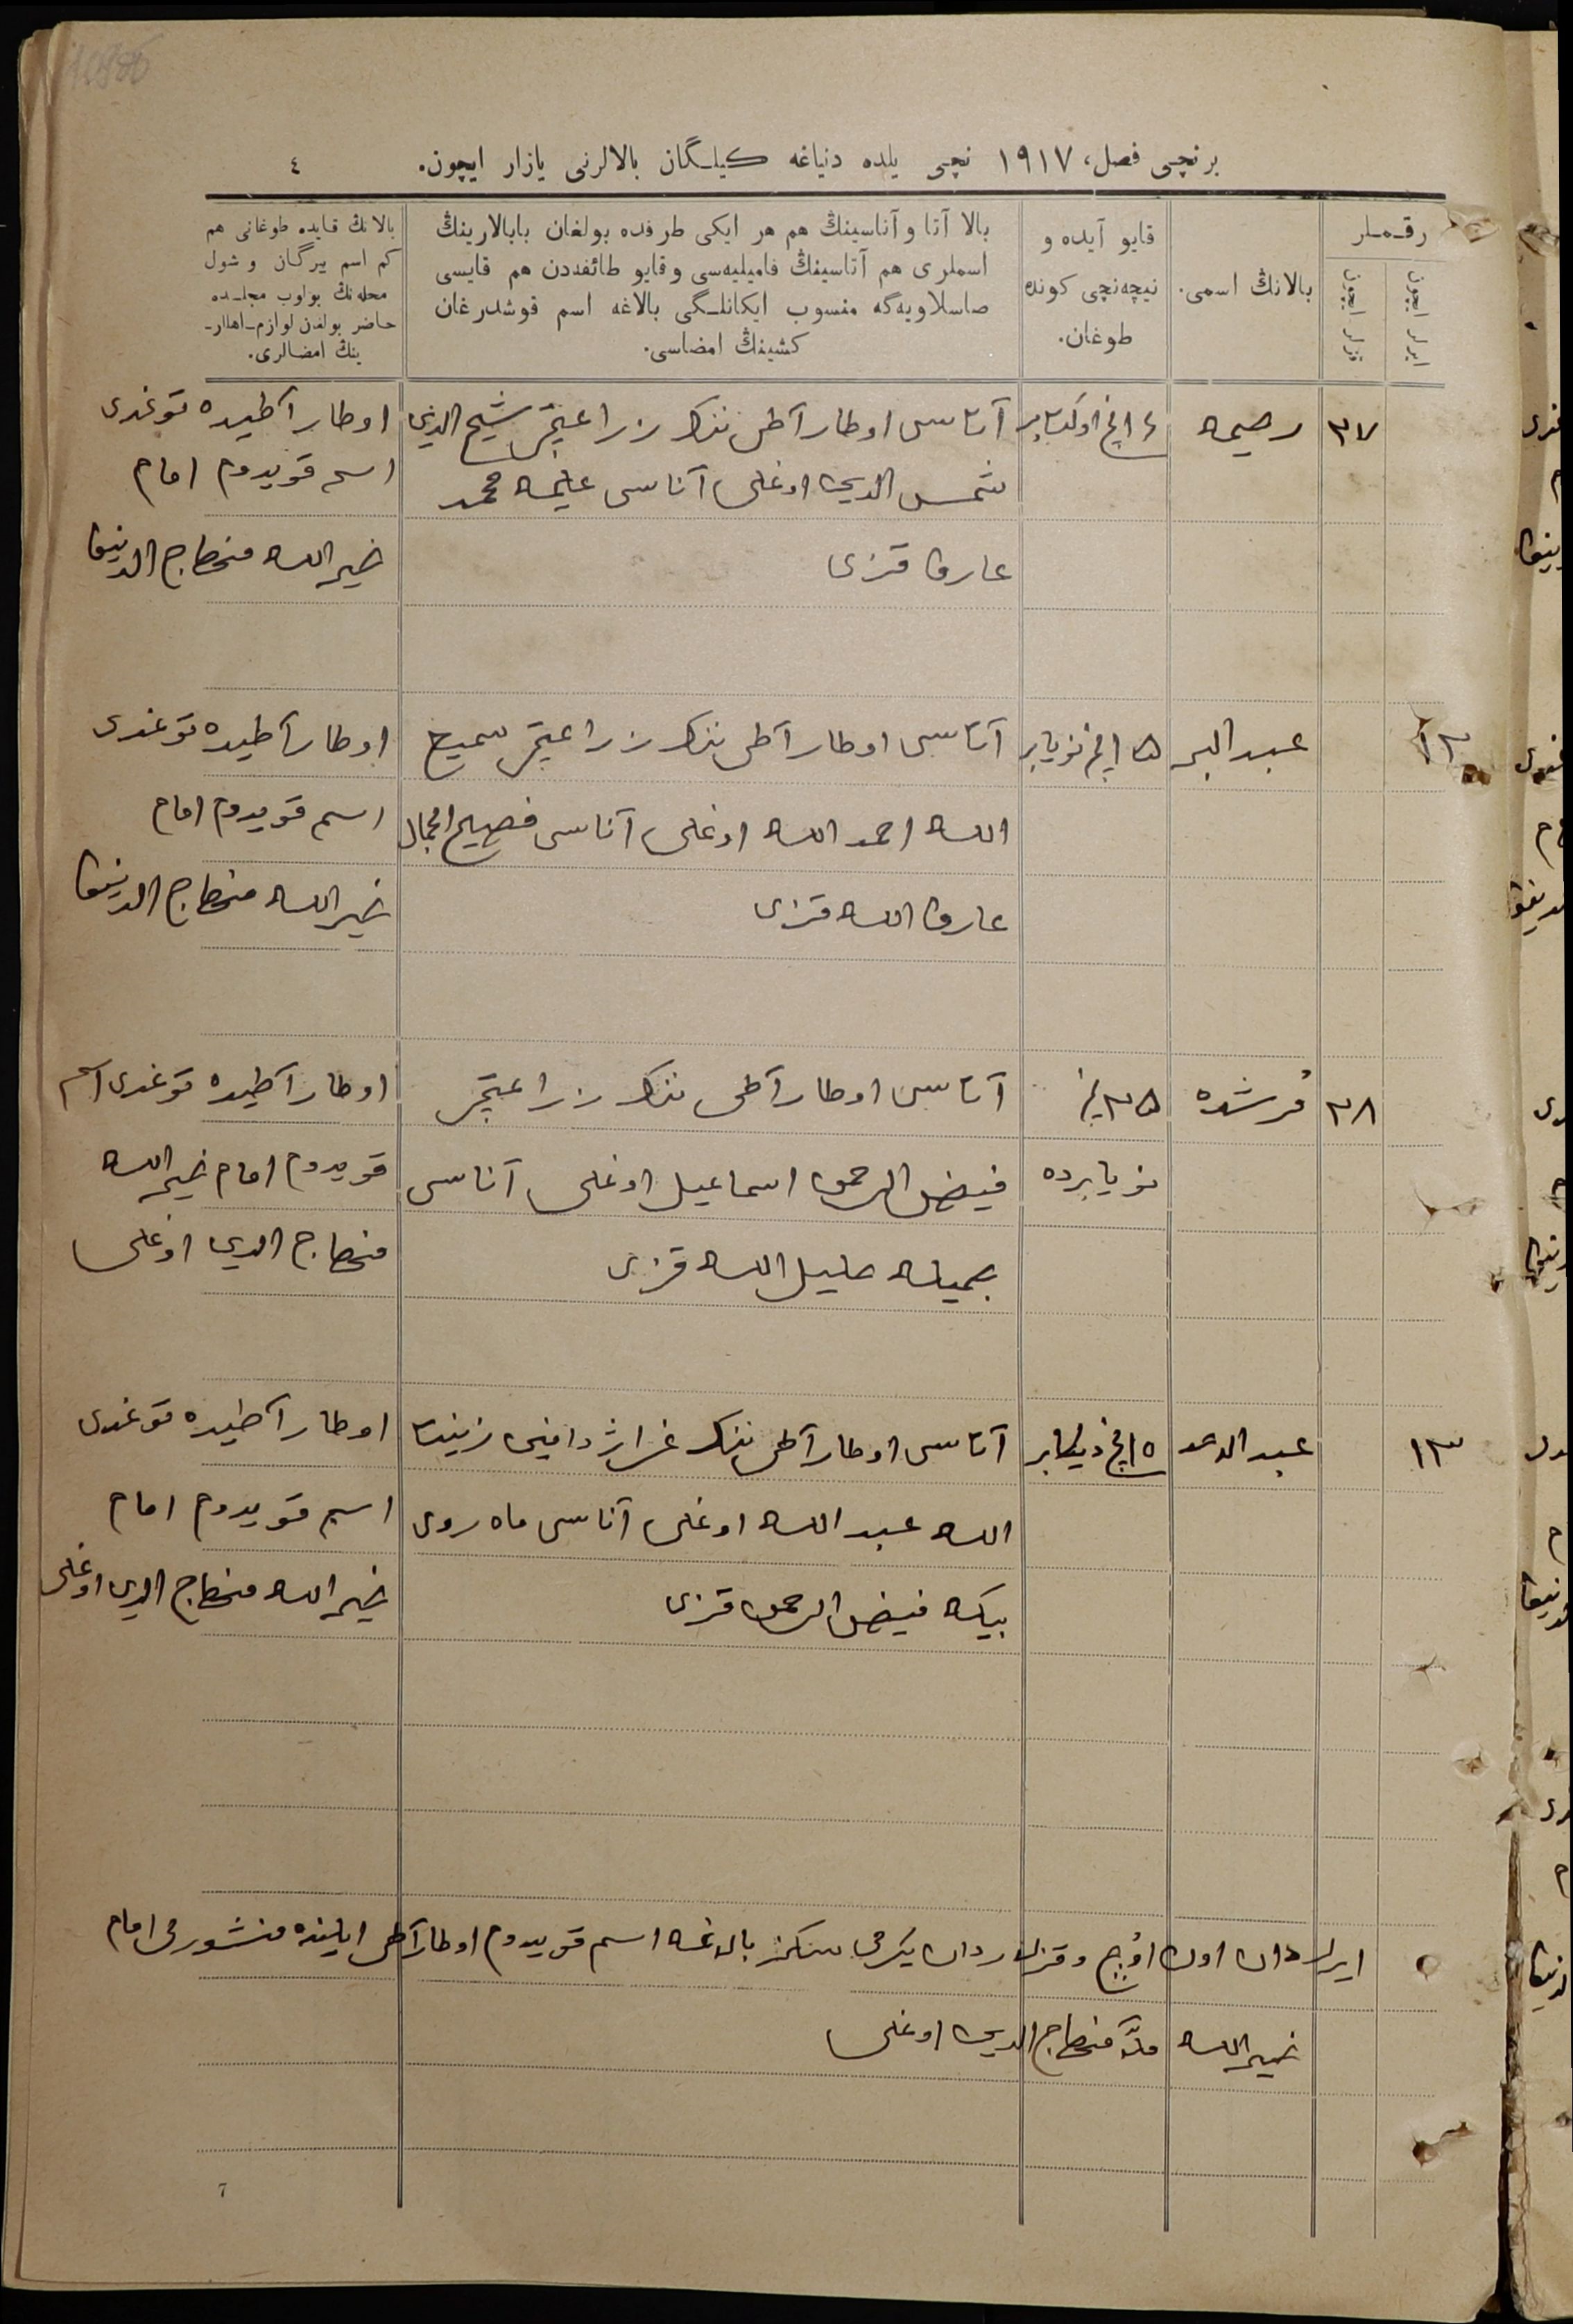 برنچی فصل، ١٩١٧ نچی یلده دنیاغه کیلـگان بالالرنی یازار ایچون.
٤
رقـمـلر
ایرلر ایچون
قزلر ایچون
بالانڭ اسمی.
قایو آیده و
نیچه‌نچی کونده
طوغان.
بالا آتا و آناسینڭ هم هر ایکی طرفده بولغان بابالارینڭ
اسملری هم آتاسینڭ فامیلیه‌سی و قایو طائفه‌دن هم قایسی
صاسلاویه‌گه منسوب ایکانلـگی بالاغه اسم قوشدرغان
کشینڭ امضاسی.
بالانڭ قایده طوغانی هم
کم اسم بیرگان و شول
محله‌نڭ بولوب مجلـده
حاضر بولغان لوازم اهللر
ینڭ امضالری.
٢٧ رحیمه
اوکتابر
آتاسی اوطار آطی ننک زراعیتچی شیخ الدین
شمس الدین اوغلی آناسی علیمه محمد
عارف قزی
اوطار آطیده توغدی
اسم قویدوم امام
خیرالله منهاج الدینف
١٢ عبدالبر ١٥ نچی نویابر
آتاسی اوطار آطی ننک زراعیتچی سمیع
الله احمد الله اوغلی آناسی فصیح الجمال
عارف الله قزی
اوطار آطیده توغدی
اسم قویدوم امام
خیرالله منهاج الدینف
٢٨ مرشده ٢٥ نچی
نویابرده
آتاسی اوطار آطی ننک زراعیتچی
فیض الرحمن اسماعیل اوغلی آناسی
جمیله خلیل الله قزی
اوطار آطیده توغدی اسم
قویدوم امام خیرالله
منهاج الدین اوغلی
١٣ عبدالاحد ١٥ نچی دیکابر
آتاسی اوطار آطی ننک غراژدانینی زینت
الله عبد الله اوغلی آناسی ماه روی
بیکه فیض الرحمن قزی
اوطار آطیده توغدی
اسم قویدوم امام
خیرالله منهاج الدین اوغلی
ایرلردان اون اوچ و قزلاردان یکرمی سکز بالاغه اسم قویدوم اوطار آطی ایلینده منشورلی امام
خیرالله ملا منهاج الدین اوغلی
7